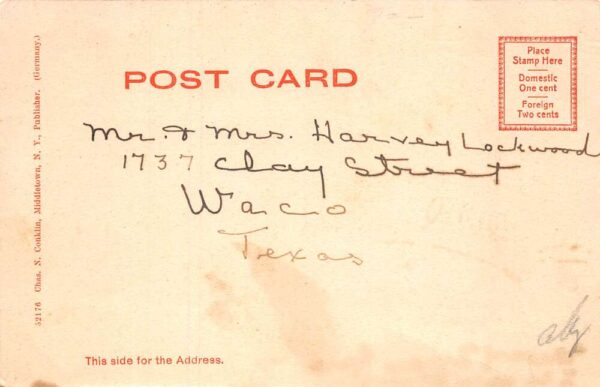 Place
Stamp Here
Domestic
One cent
Foreign
Two cents
POST CARD
Mr. & Mrs. Harvey Lockwood
1737 Clay Street
Waco
Texas
52176 Chas. N. Conklin, Middletown, N. Y., Publisher. (Germany.)
This side for the Address.